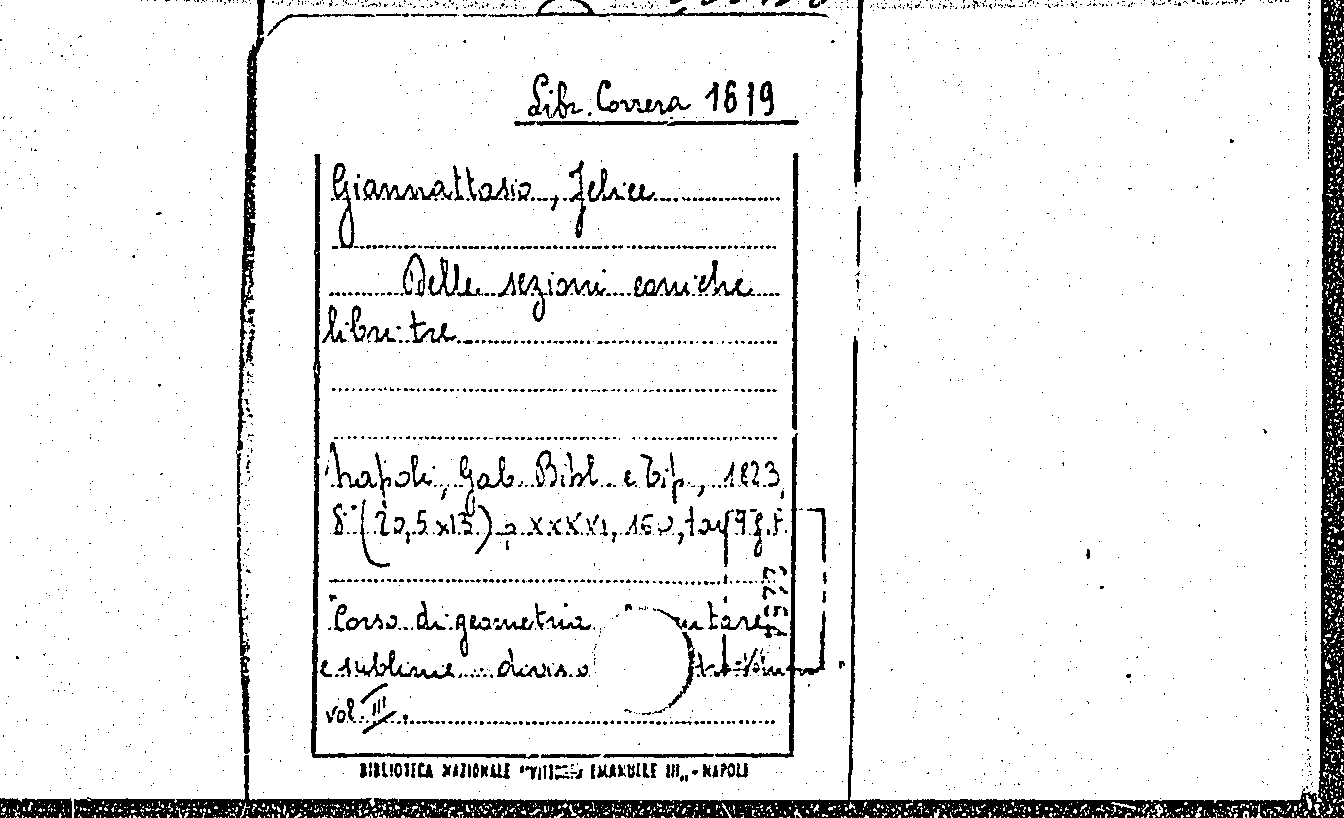 Libr. Correra 1619
Giannattasio, Felice
Delle sezioni coniche
libri tre
Napoli, Gab. Bibl. e Tip., 1823,
8° (20,5x13) p. XXXVI, 160, tav. 9 f.t.
"Corso di geometria
e sublime diviso
vol. III.
BIBLIOTECA NAZIONALE "VITTORIO EMANUELE III" - NAPOLI